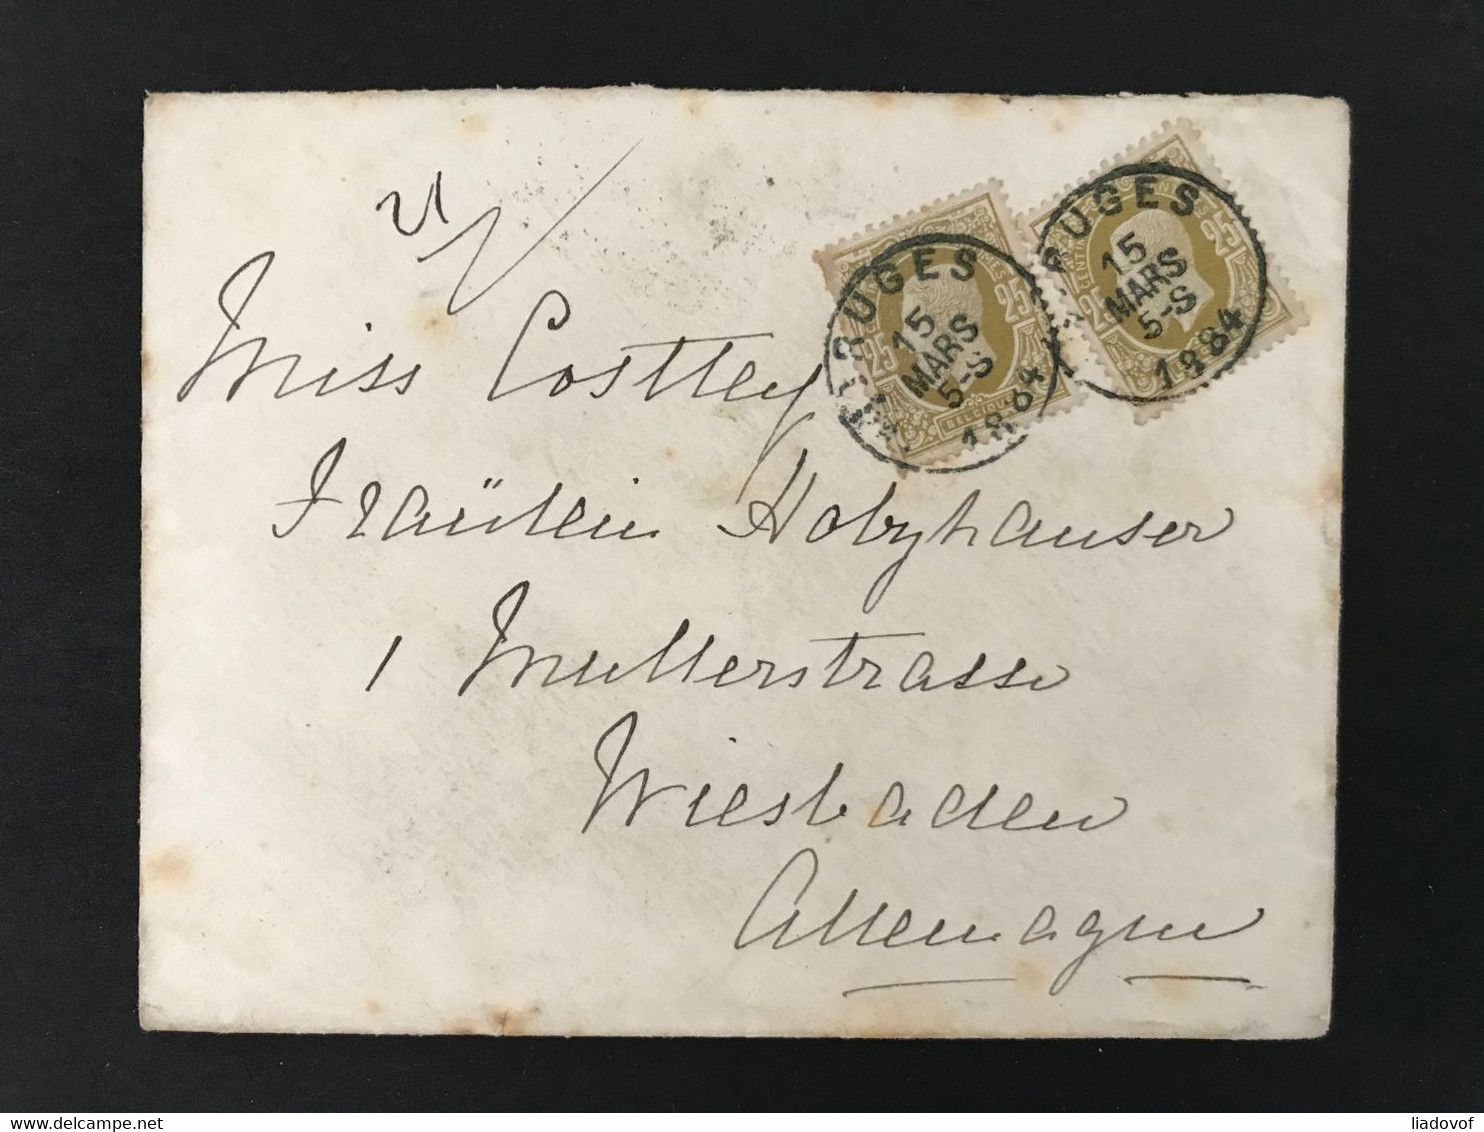 BRUGES
15
MARS
5-S
1884
25
25
BELGIQUE
BRUGES
15
MARS
5-S
1884
25
Miss Costley
Fraülein Hobzhauser
1 Mullerstrasse
Wiesbaden
Allemagne
Delcampe.net
liadovof